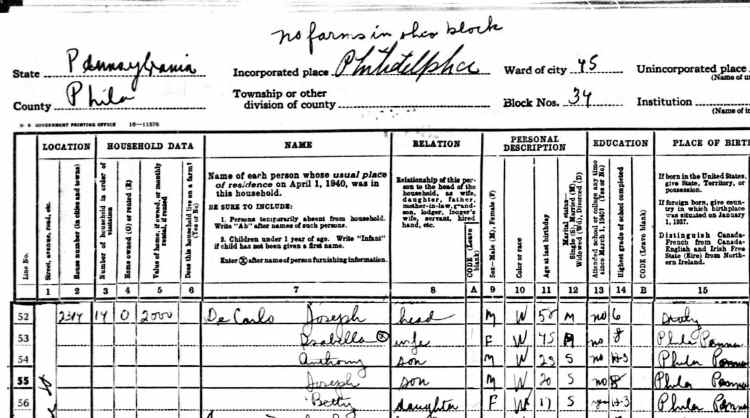 no farms in this block
State Pennsylvania Incorporated place Philadelphia Ward of city 45 Unincorporated place
(Name of
County Phila Township or other
division of county Block Nos. 34 Institution
(Name of
U. S. GOVERNMENT PRINTING OFFICE 16—11576
LOCATION HOUSEHOLD DATA NAME RELATION PERSONAL DESCRIPTION EDUCATION PLACE OF BIRT
Line No.
Street, avenue, road, etc.
House number (in cities and towns)
Number of household in order of visitation
Home owned (O) or rented (R)
Value of home, if owned, or monthly rental, if rented
Does this household live on a farm? (Yes or No)
Name of each person whose usual place
of residence on April 1, 1940, was in
this household.
BE SURE TO INCLUDE:
1. Persons temporarily absent from household.
Write "Ab" after names of such persons.
2. Children under 1 year of age. Write "Infant"
if child has not been given a first name.
Enter Ⓧ after name of person furnishing information.
Relationship of this per-
son to the head of the
household, as wife,
daughter, father,
mother-in-law, grand-
son, lodger, lodger's
wife, servant, hired
hand, etc.
CODE (Leave blank)
Sex—Male (M), Female (F)
Color or race
Age at last birthday
Marital status—
Single (S), Married (M),
Widowed (Wd), Divorced (D)
Attended school or college any time since March 1, 1940? (Yes or No)
Highest grade of school completed
CODE (Leave blank)
If born in the United States,
give State, Territory, or
possession.
If foreign born, give coun-
try in which birthplace
was situated on January
1, 1937.
Distinguish Canada-
French from Canada-
English and Irish Free
State (Eire) from North-
ern Ireland.
1 2 3 4 5 6 7 8 A 9 10 11 12 13 14 B 15
52 14 O 2000 De Carlo Joseph head M W 50 M no 6
53 Isabella Ⓧ wife F W 45 M no 8 Phila Penna
54 Anthony son M W 23 S no H-3 Phila Penna
55 Joseph son M W 20 S no 8 Phila Penna
56 Betty daughter F W 17 S H-3 Phila Penna